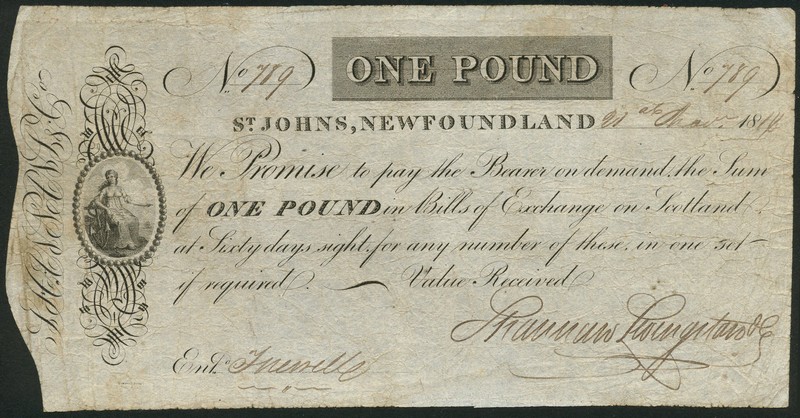 No 789 ONE POUND No 789
ST JOHNS, NEWFOUNDLAND 21st 18
We Promise to pay the Bearer on demand, the Sum
of ONE POUND in Bills of Exchange on Scotland
at Sixty days sight, for any number of these, in one set
if required. Value Received
Shannan Livingston & Co
Entd